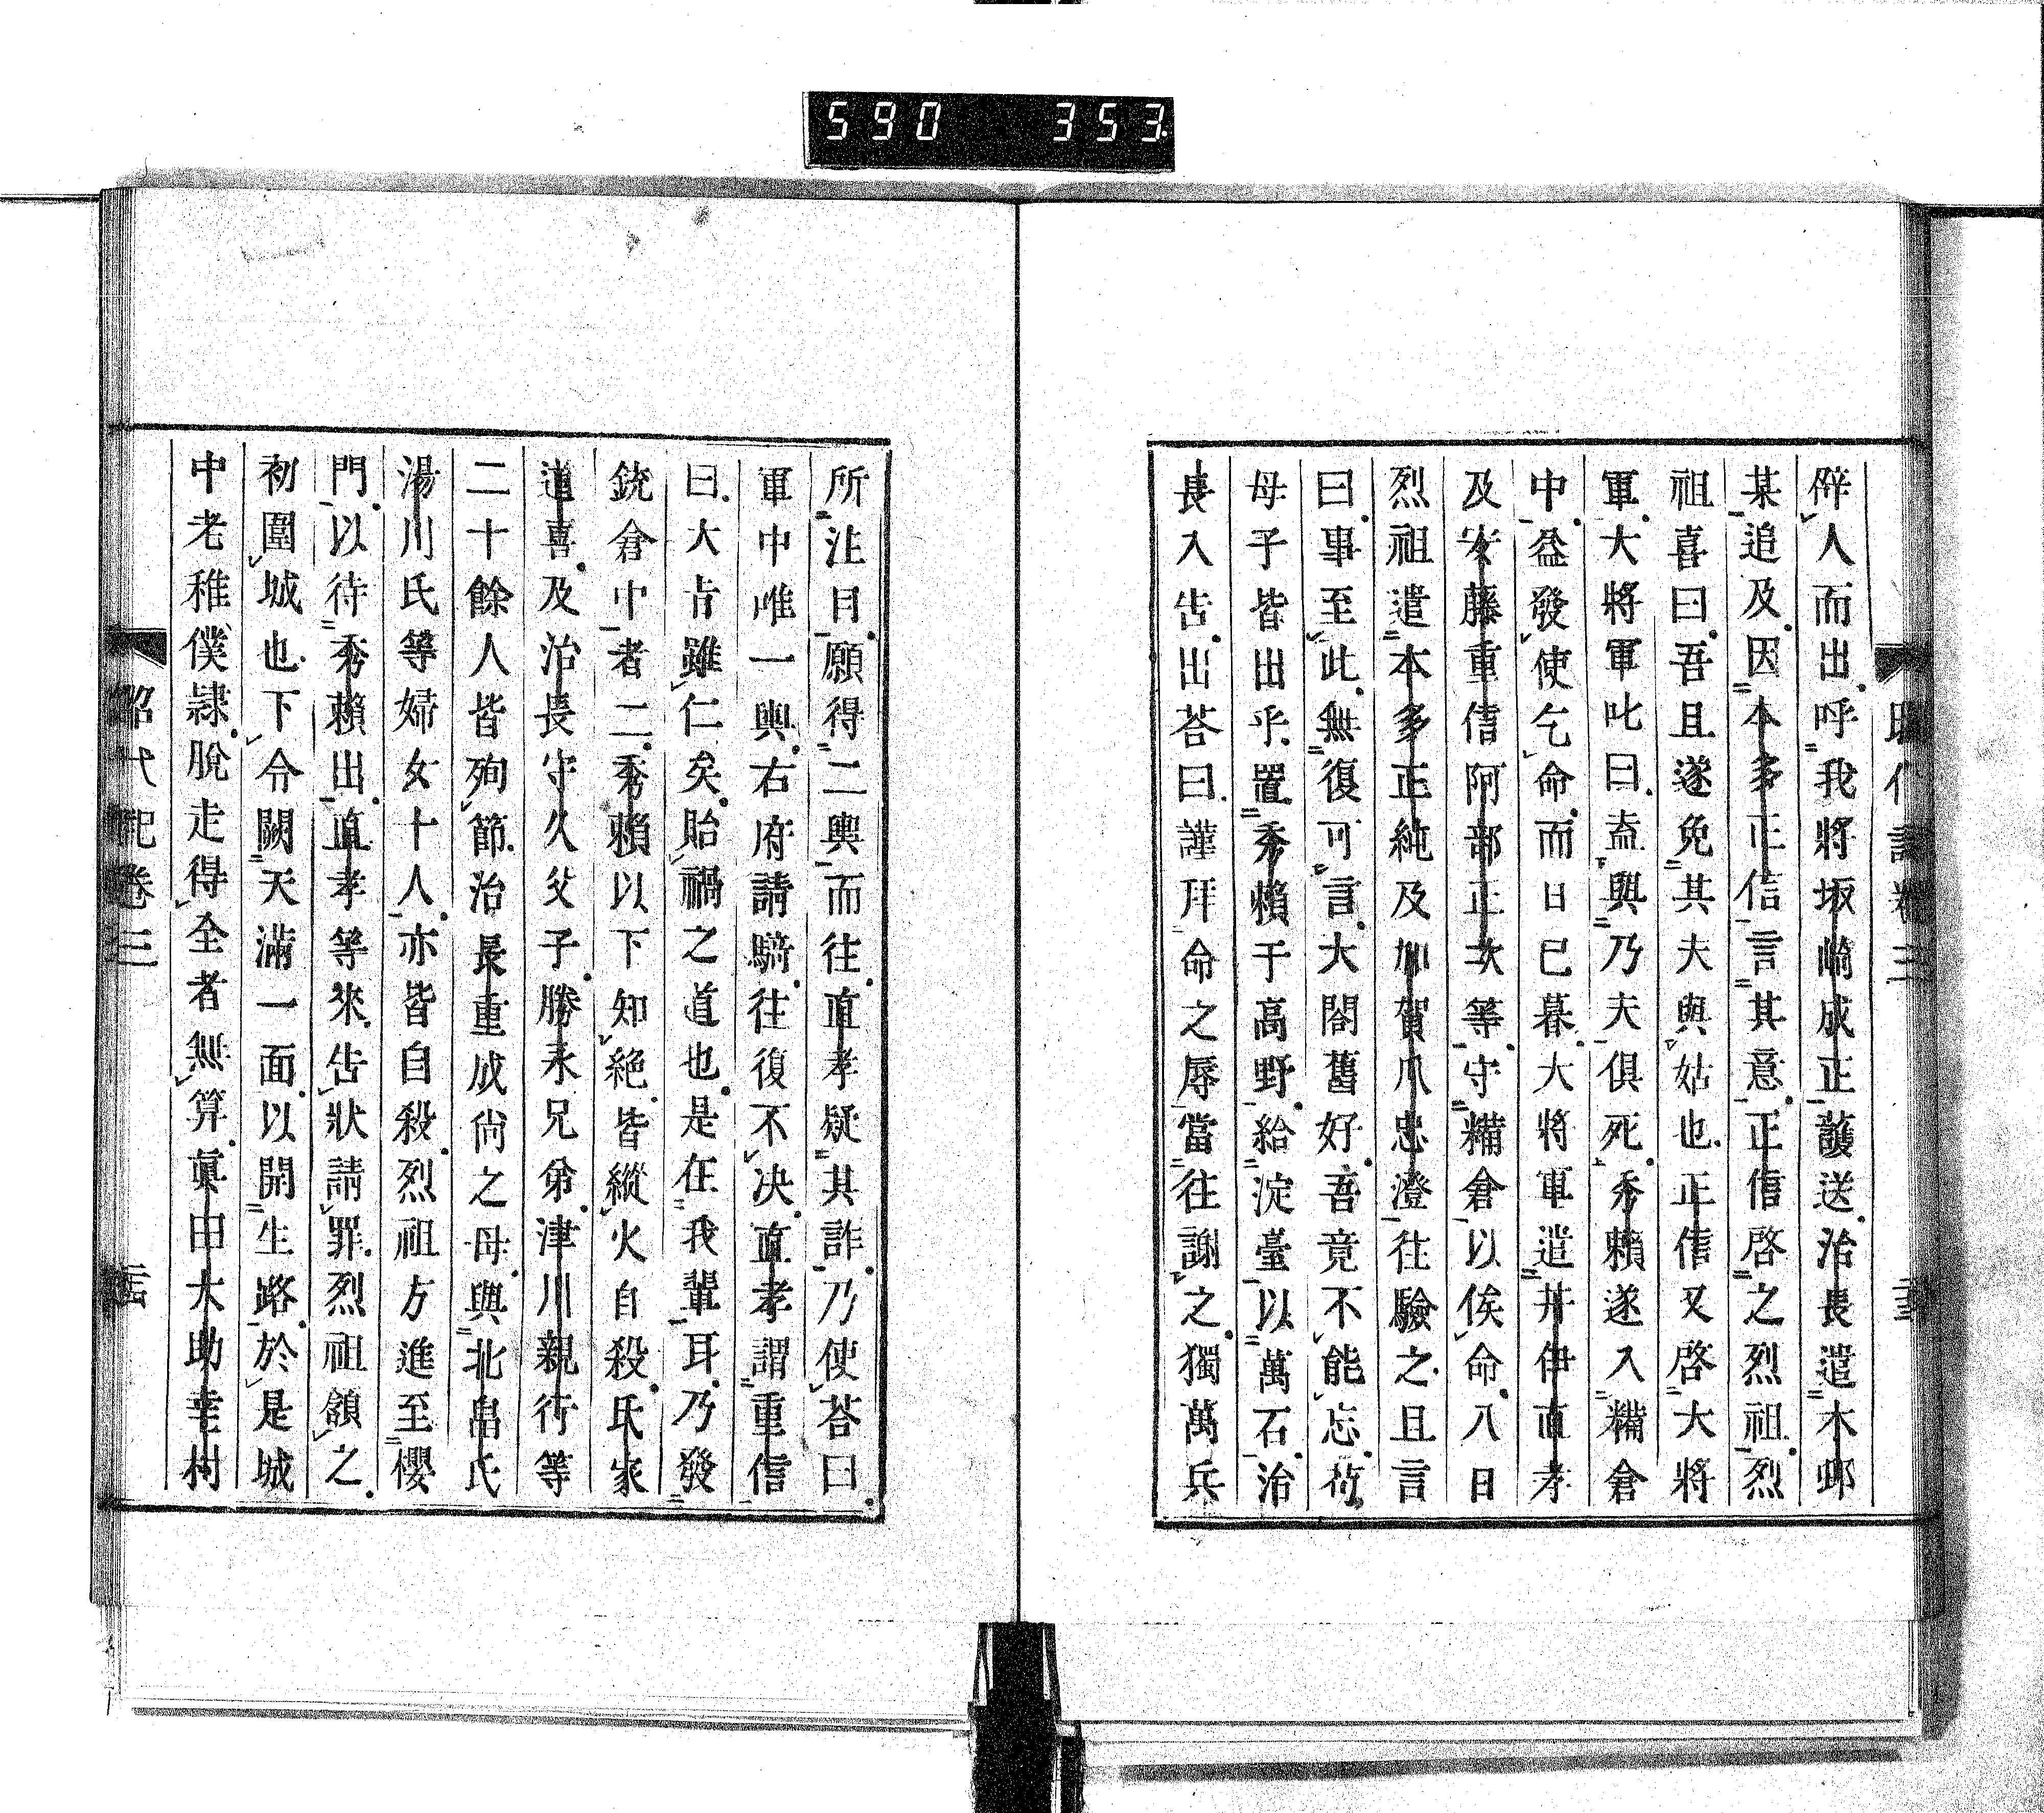 590 353
昭代記卷三
辟人而出呼我將坂崎成正護送治長遣木邨
某追及因本多正信言其意正信啓之烈祖烈
祖喜曰吾且遂免其夫與姑也正信又啓大將
軍大將軍叱曰盍與乃夫俱死秀賴遂入糒倉
中益發使乞命而日已暮大將軍遣井伊直孝
及安藤重信阿部正次等守糒倉以俟命八日
烈祖遣本多正純及加賀爪忠澄往驗之且言
曰事至此無復可言大閤舊好吾竟不能忘苟
母子皆出乎置秀賴于高野給淀臺以萬石治
長入告出荅曰謹拜命之辱當往謝之獨萬兵
所注目願得二輿而往直孝疑其詐乃使荅曰
軍中唯一輿右府請騎往復不决直孝謂重信
曰大旨雖仁矣貽禍之道也是在我輩耳乃發
銃倉中者二秀賴以下知絶皆縱火自殺氏家
道喜及治長守久父子勝永兄弟津川親行等
二十餘人皆殉節治長重成尙之母與北畠氏
湯川氏等婦女十人亦皆自殺烈祖方進至櫻
門以待秀賴出直孝等來告狀請罪烈祖頷之
初圍城也下令闕天滿一面以開生路於是城
中老稚僕隷脫走得全者無算眞田大助幸村
昭代記卷三